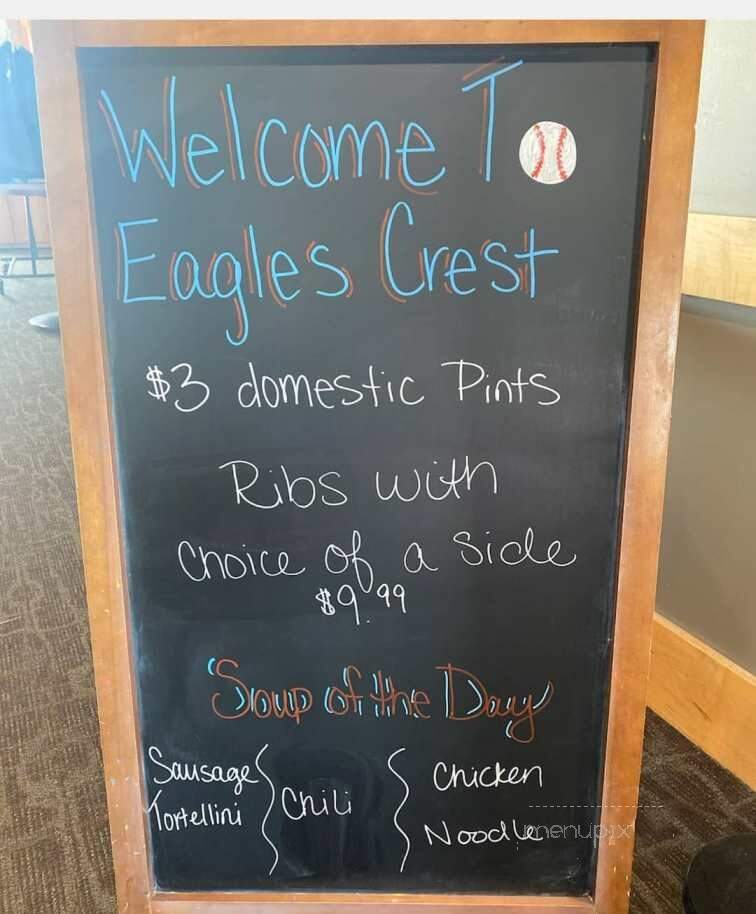 Welcome T
Eagles Crest
$3 domestic Pints
Ribs with
Choice of a Side
$9.99
Soup of the Day
Sausage Tortellini
Chili
Chicken Noodle
menupix